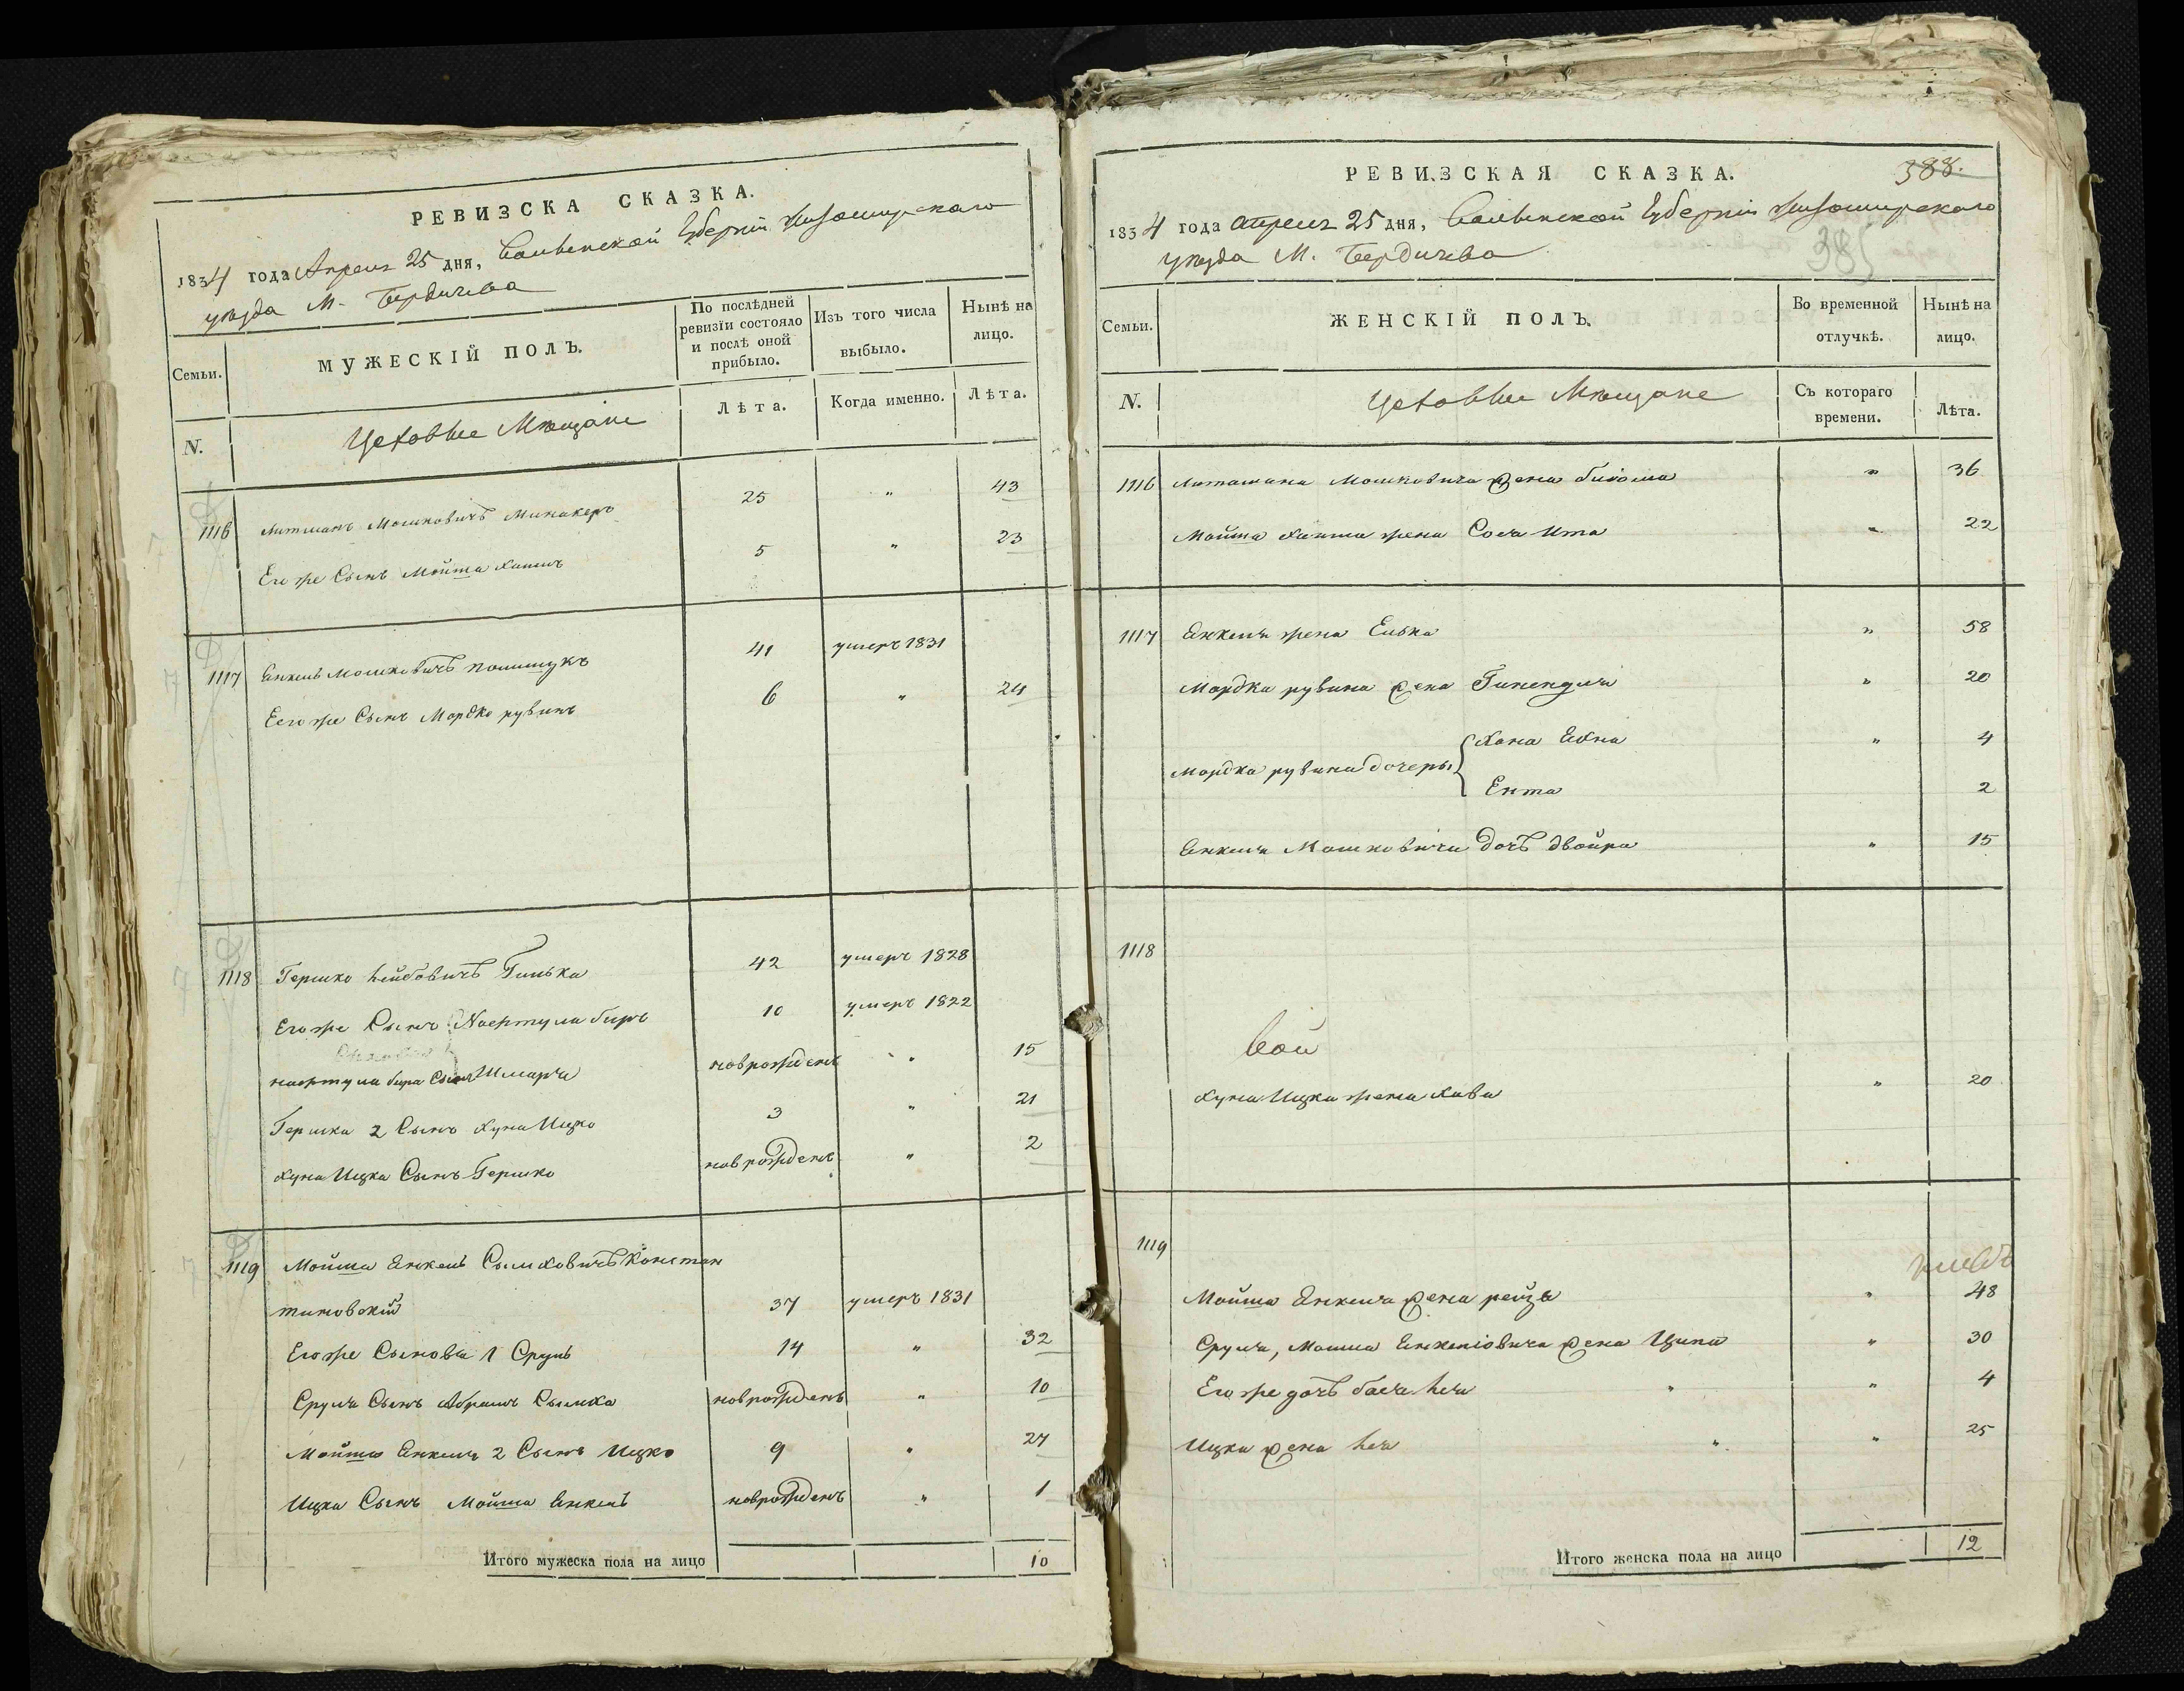 РЕВИЗСКА СКАЗКА.
1834 года Апреля 25 дня, Волынской Губернїи Житомирскаго
уезда М. Бердичева
Семьи.
МУЖЕСКІЙ ПОЛЪ.
По послѣдней ревизїи состояло и послѣ оной прибыло.
Изъ того числа выбыло.
Нынѣ на лицо.
N.
Цеховые Мещане
Лѣта.
Когда именно.
Лѣта.
1116 Литманъ Мошковичъ Минакеръ 25 " 43
Его же Сынъ Мойша Хаимъ 5 " 23
1117 Янкель Мошковичъ Полищукъ 41 умеръ 1831
Его же Сынъ Мордко рувинъ 6 " 24
1118 Гершко Лейбовичъ Гилька 42 умеръ 1828
Его же Сынъ Нафтула биръ 10 умеръ 1822
нафтула бира Сынъ Шмаря новрожденъ " 15
Гершка 2 Сынъ Хуна Ицко 3 " 21
Хуна Ицка Сынъ Гершко новрожденъ " 2
1119 Мойша Янкель Сымховичъ Констан
тиновскій 37 умеръ 1831
Его же Сыновья 1 Сруль 14 " 32
Сруля Сынъ Абрамъ Сымха новрожденъ " 10
Мойша Янкеля 2 Сынъ Ицко 9 " 27
Ицка Сынъ Мойша Янкель новрожденъ " 1
Итого мужеска пола на лицо 10
РЕВИЗСКАЯ СКАЗКА.
388.
385
1834 года Апреля 25 дня, Волынской Губернїи Житомирскаго
уезда М. Бердичева
Семьи.
ЖЕНСКІЙ ПОЛЪ.
Во временной отлучкѣ.
Нынѣ на лицо.
N.
Цеховые Мещане
Съ котораго времени.
Лѣта.
1116 Литмана Мошковича жена " 36
Мойша Хаима жена Сося Ита " 22
1117 Янкеля жена Елька " 58
Мордка рувина жена Гинендля " 20
Мордка рувина дочеры { Хана Ейдля " 4
Ента 2
Янкеля Мошковича дочь двойра " 15
1118
Хуна Ицка жена Хава " 20
1119
Мойша Янкеля жена рейза " 48
Сруля, Мошка Янкеліовича жена Ципа " 30
Его же дочь бася лея " " 4
Ицка жена лея " " 25
Итого женска пола на лицо 12